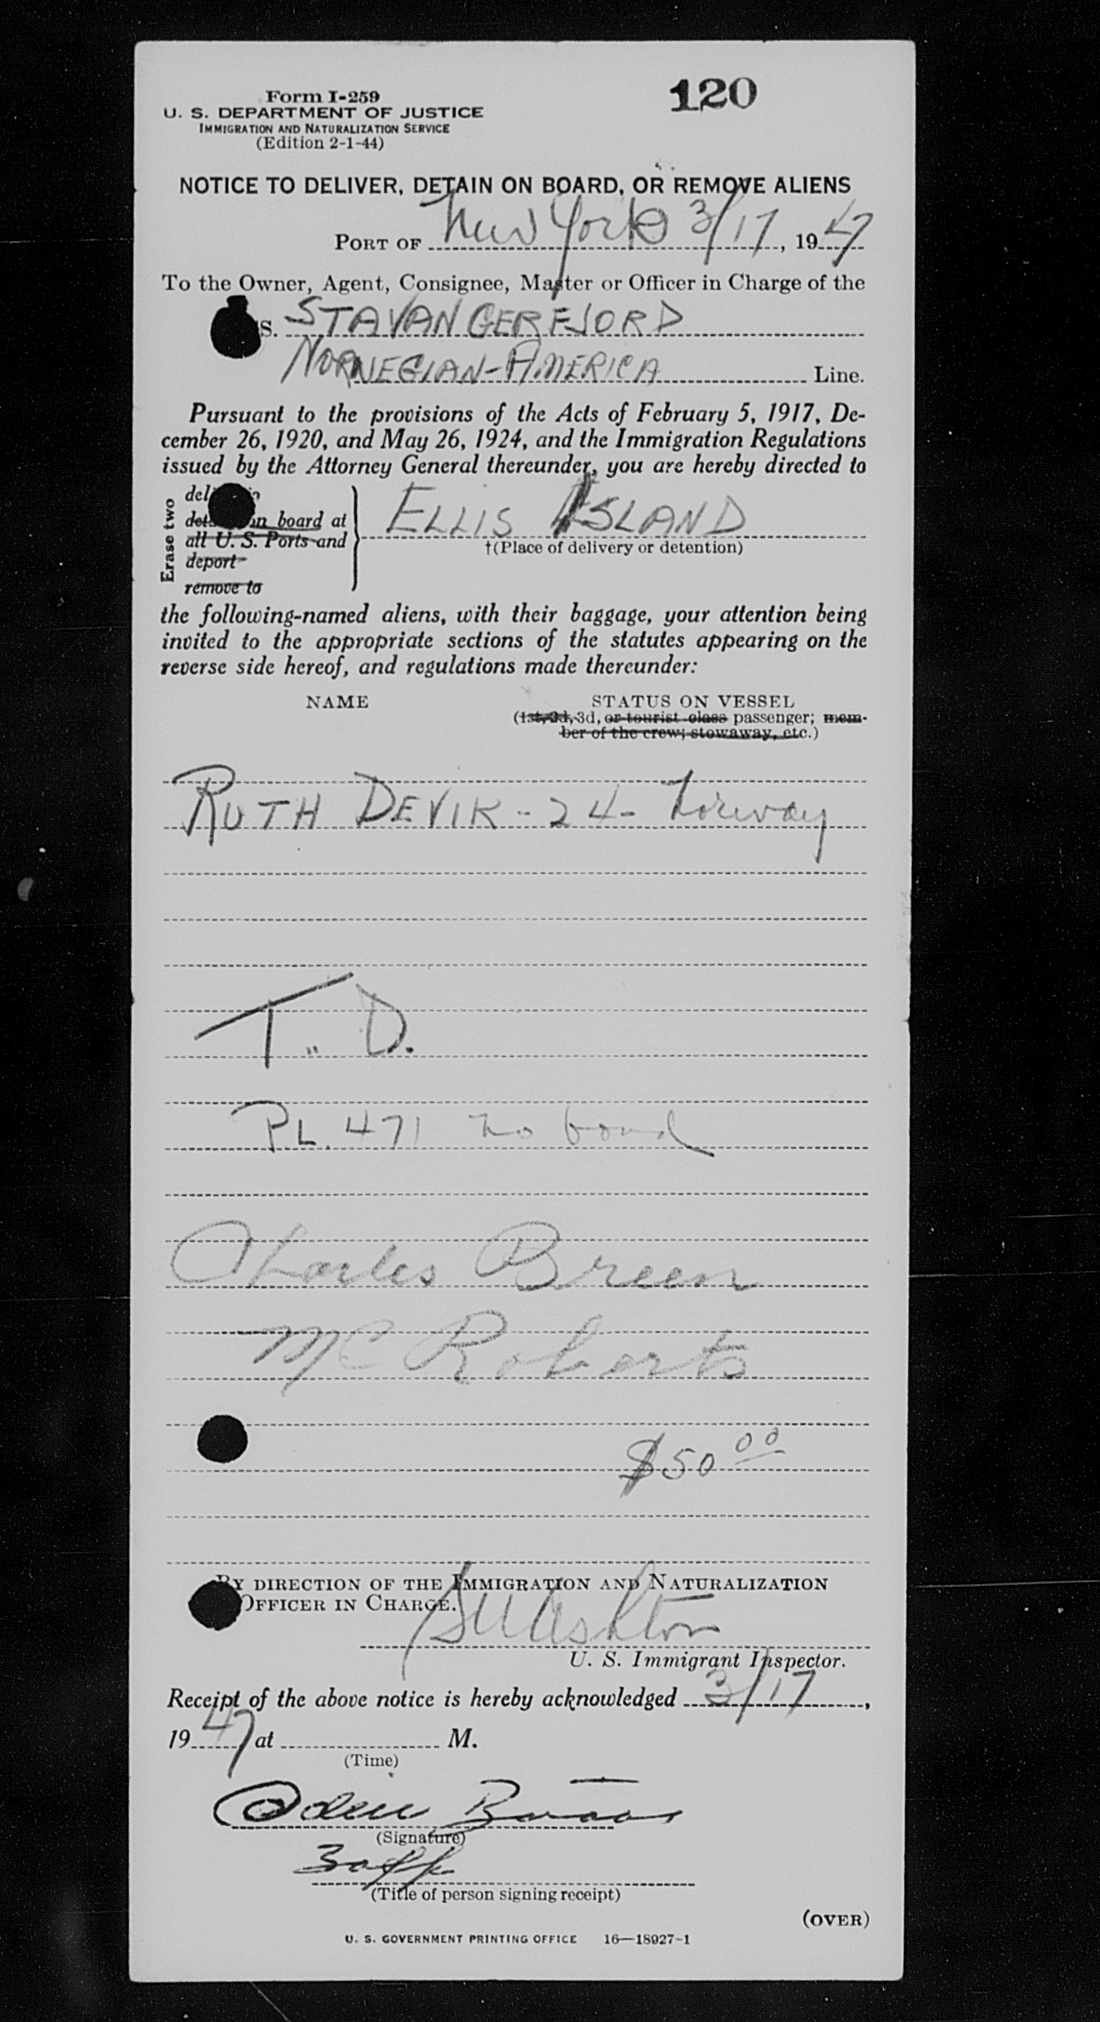 Form I-259
120
U. S. DEPARTMENT OF JUSTICE
IMMIGRATION AND NATURALIZATION SERVICE
(Edition 2-1-44)
NOTICE TO DELIVER, DETAIN ON BOARD, OR REMOVE ALIENS
PORT OF New York 3/17, 1947
To the Owner, Agent, Consignee, Master or Officer in Charge of the
S. STAVANGERFJORD
NORWEGIAN-AMERICA Line.
Pursuant to the provisions of the Acts of February 5, 1917, De-
cember 26, 1920, and May 26, 1924, and the Immigration Regulations
issued by the Attorney General thereunder, you are hereby directed to
Erase two
on board at
all U. S. Ports and
deport
remove to
ELLIS ISLAND
†(Place of delivery or detention)
the following-named aliens, with their baggage, your attention being
invited to the appropriate sections of the statutes appearing on the
reverse side hereof, and regulations made thereunder:
NAME STATUS ON VESSEL
(1st, 2d, 3d, or tourist class passenger; mem-
ber of the crew; stowaway, etc.)
RUTH DEVIK - 24 - Norway
T. D.
PL. 471 no bond
Charles Breen
McRoberts
$50 00
BY DIRECTION OF THE IMMIGRATION AND NATURALIZATION
OFFICER IN CHARGE.
Ashton
U. S. Immigrant Inspector.
Receipt of the above notice is hereby acknowledged 3/17,
1947 at M.
(Time)
(Signature)
(Title of person signing receipt)
(OVER)
U. S. GOVERNMENT PRINTING OFFICE 16—18927-1